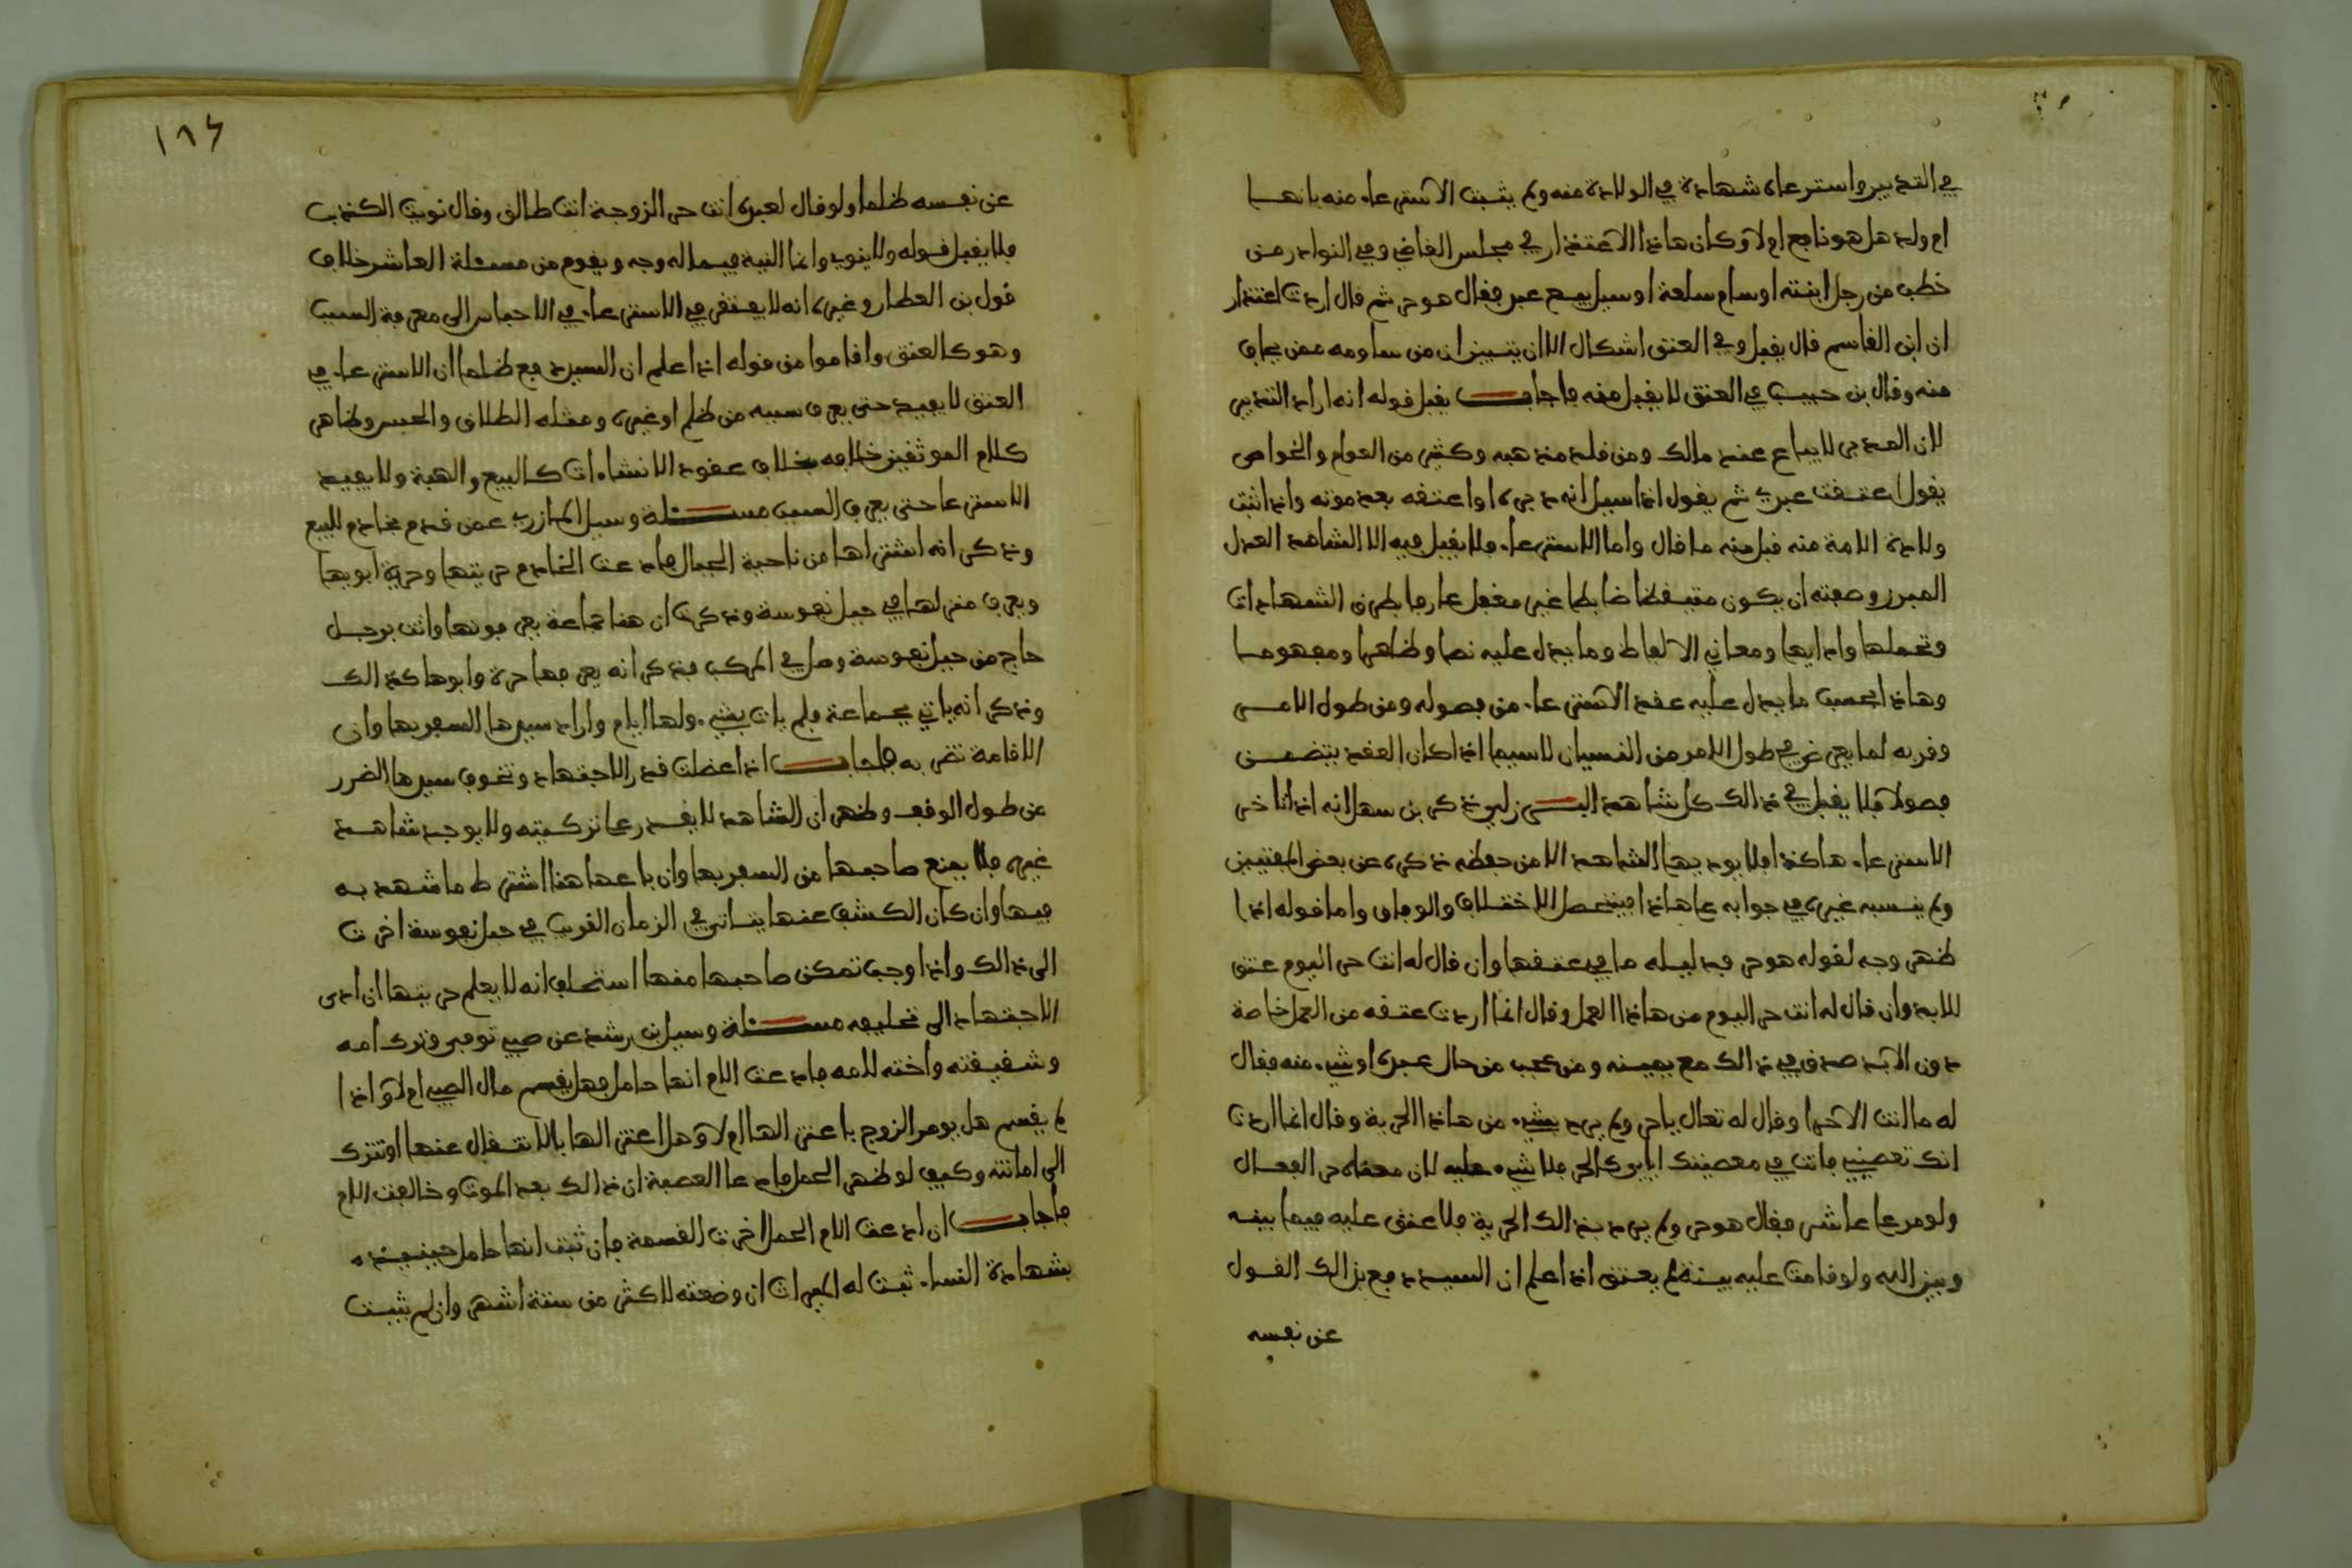 في التدبير واسترعاه شهادة في الولادة منه ولم يثبت الاسترعاء منه بانها
ام ولد هل هو نافع ام لا وكان هاذا الاعتذار في مجلس القاضي وفي النوادر من
خطب من رجل ابنته او سام سلعة او سيل بيع عبد فقال هو حر ثم قال اردت اعتذار
ان ابن القاسم قال يقبل وفي العتق اشكال الا ان يتبين ان من ساومه ممن يخاف
منه وقال بن حبيب في العتق لا يقبل منه فاجاب يقبل قوله انه اراد التدبير
لان المدبر لا يباع عند مالك ومن قلد مذهبه وكثير من العوام والخواص
يقول اعتقت عبدي ثم يقول اذا سيل انه دبره او اعتقه بعد موته واذا اثبت
ولادة الامة منه قبل منه ما قال واما الاسترعاء فلا يقبل فيه الا الشاهد العدل
المبرز وصفته ان يكون متيقظا ضابطا غير مغفل عارفا بطرق الشهادات
وتحملها وادايها ومعاني الالفاظ وما يدل عليه نصا وظاهرا ومفهوما
وهاذا بحسب ما يدل عليه عقد الاسترعاء من فصوله ومن طول الامر
وقربه لما يعرض في طول الامر من النسيان لاسيما اذا كان العقد يتضمن
فصولا فلا يقبل في ذالك كل شاهد البرزلي ذكر بن سهل انه اذا تاخر
الاسترعاء هاكذا فلا يوديها الشاهد الا من حفظه ذكره عن بعض المفتيين
ولم ينسبه غيره في جوابه على هاذا فيتحصل الاختلاف والوفاق واما قوله اذا
ظهر وجه لقوله هو حر فدليله ما في عتقها وان قال له انت حر اليوم عتق
للابد وان قال له انت حر اليوم من هاذا العمل وقال انما اردت عتقه من العمل خاصة
دون الابد صدق في ذالك مع يمينه ومن عجب من حال عبده او شيء منه فقال
له ما انت الا حرا وقال له تعال يا حر ولم يرد بشيء من هاذا الحرية وقال انما اردت
انك تعصيني فانت في معصيتك اياي كالحر فلا شيء عليه لان معناه حر الفعال
ولو مر على عاشر فقال هو حر ولم يرد بذالك الحرية فلا عتق عليه فيما بينه
وبين الله ولو قامت عليه بينة لم يعتق اذا علم ان السيد دفع بذالك القول
عن نفسه
١٨٦
عن نفسه ظلما ولو قال لعبده انت حر الزوجة انت طالق وقال نويت الكذب
فلا يقبل قوله ولا ينوي وانما النية فيما له وجه ويقوم من مسئلة العاشر خلاف
قول بن العطار وغيره انه لا يفتقر في الاسترعاء في الاحباس الى معرفة السبب
وهو كالعتق واقاموا من قوله اذا علم ان السيد دفع ظلما ان الاسترعاء في
العتق لا يفيد حتى يعرف سببه من ظلم او غيره ومثله الطلاق والحبس وظاهر
كلام الموثقين خلافه بخلاف عقود الانشاءات كالبيع والهبة ولا يفيد
الاسترعا حتى يعرف السبب مسئلة وسيل المازري عمن قدم بخادم للبيع
وذكر انه اشتراها من ناحية الجبال فادعت الخادم حريتها وحرية ابويها
ويعرف منزلها في جبل نفوسة وذكرت ان هنا جماعة يعرفونها واتت برجل
حاج من جبل نفوسة وصل في المركب فذكر انه يعرفها حرة وابوها كذالك
وذكر انه ياتي بجماعة فلم يات بشيء ولها ايام واراد سيدها السفر بها وان
الاقامة تضر به فاجاب اذا اعطلت قدر الاجتهاد وتخوف سيدها الضرر
من طول الوقف وظهر ان الشاهد لا يقدر على تزكيته ولا يوجد شاهد
غيره فلا يمنع صاحبها من السفر بها وان باعها هنا اشترط ما شهد به
فيها وان كان الكشف عنها يتاتي في الزمان القريب في جبل نفوسة اخرت
الى ذالك واذا وجب تمكن صاحبها منها استحلف انه لا يعلم حريتها ان ادى
الاجتهاد الى تحليفه مسئلة وسيل بن رشد عن صبي توفي وترك امه
وشقيقته واخته لامه فادعت الام انها حامل فهل يقسم مال الصبي ام لا واذا
لم يقسم هل يومر الزوج باعتزالها ام لا وهل اعتزالها بالانتقال عنها او تترك
الى امانته وكيف لو ظهر الحمل فادعا العصبة ان ذالك بعد الموت وخالفت الام
فاجاب ان ادعت الام الحمل اخرت القسمة فان ثبت انها حامل حينيذ
بشهادة النساء ثبت له الميراث ان وضعته لاكثر من ستة اشهر وان لم يثبت